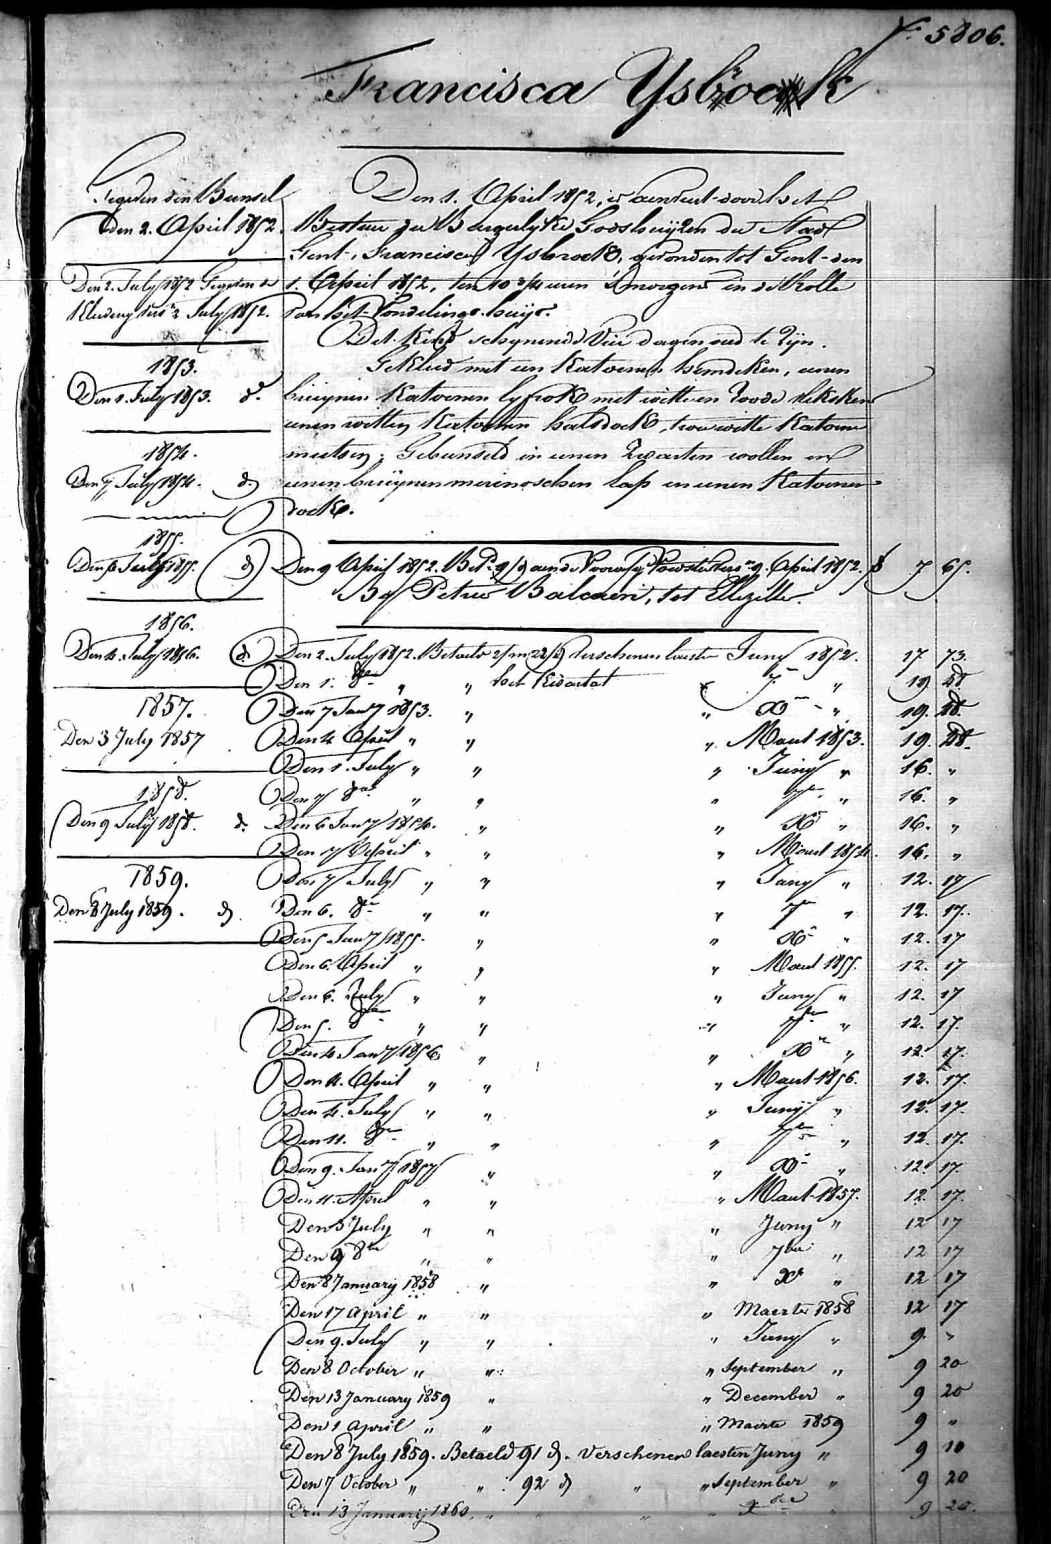 N° 5806.
Francisca Ysbrock
Gegeven den Bunsel
den 2. April 1852.
Den 2. July 1852 Gegeven de
Kledeng 2 July 1852.
1853.
Den 1. July 1853. d°
1854.
Den 7 July 1854. d)
1855.
Den 6 July 1855. d)
1856.
Den 4. July 1856. d.
1857.
Den 3 July 1857
1858.
Den 9 July 1858. d.
1859.
Den 8 July 1859. d).
Den 1. April 1852, is door het
Bestuer der Burgerlyke Godshuyzen der Stad
Gent, Francisca Ysbrock, gevonden tot Gent den
1. April 1852, ten 10 3/4 uren 's morgens in de Rolle
van het Vondelings-huys.
Het Kind schynende Vier dagen oud te Zyn.
Gekleed met een Katoenen hemdeken, eenen
bruynen Katoenen lyfrok met witte en roode
eenen witten Katoenen halsdoek, twee witte Katoene
mutsen; Gebunseld in eenen Zwarten wollen en
eenen bruynen merinoschen lap en eenen Katoenen
doek.
Den 9 April 1852. Bet. 9 April 1852. 7 65.
By Petrus Balcaen, tot Ellezelle.
Den 2. July 1852. Betaeld verschenen laesten Juny 1852. 17 73.
Den 1. 8ber " " het Kwartal 7 " 19 58
Den 7 Jany 1853. " " Xber " 19. 58.
Den 4 April " " " Maert 1853. 19. 58.
Den 1. July " " " Juny " 16. "
Den 7 8ber " " " 7ber " 16. "
Den 6 Jany 1854. " " Xber " 16. "
Den 7 April " " " Maert 1854. 16. "
Den 7 July " " " Juny " 12. 17
Den 6. 8ber " " " 7ber " 12. 17.
Den 5 Jany 1855. " " Xber " 12. 17
Den 6. April " " " Maert 1855. 12. 17
Den 6. July " " " Juny " 12. 17
Den 5. 8ber " " " 7ber " 12. 17.
Den 4 Jany 1856. " " Xber " 12. 17.
Den 4. April " " " Maert 1856. 12. 17.
Den 4. July " " " Juny " 12. 17.
Den 11. 8ber " " " 7ber " 12. 17.
Den 9. Jany 1857 " " Xber " 12. 17.
Den 11. April " " " Maert 1857. 12. 17.
Den 3 July " " " Juny " 12 17
Den 9 8ber " " " 7ber " 12 17
Den 8 January 1858 " " Xber " 12 17
Den 17 April " " " Maerte 1858 12 17
Den 9. July " " " Juny " 9. "
Den 8 October " " " September " 9 20
Den 13 January 1859 " " December " 9 20
Den 1 April " " " Maerte 1859 9 "
Den 8 July 1859. Betaeld 91 d). Verschenen laesten Juny " 9 10
Den 7 October " " 92 d) " " September " 9 20
Den 13 January 1860 " " " " Xber " 9 20.